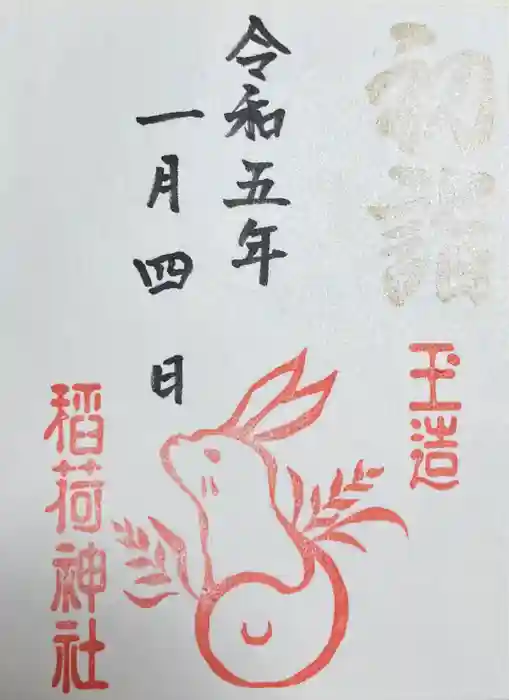 初詣
令和五年
一月四日
玉造
稲荷神社